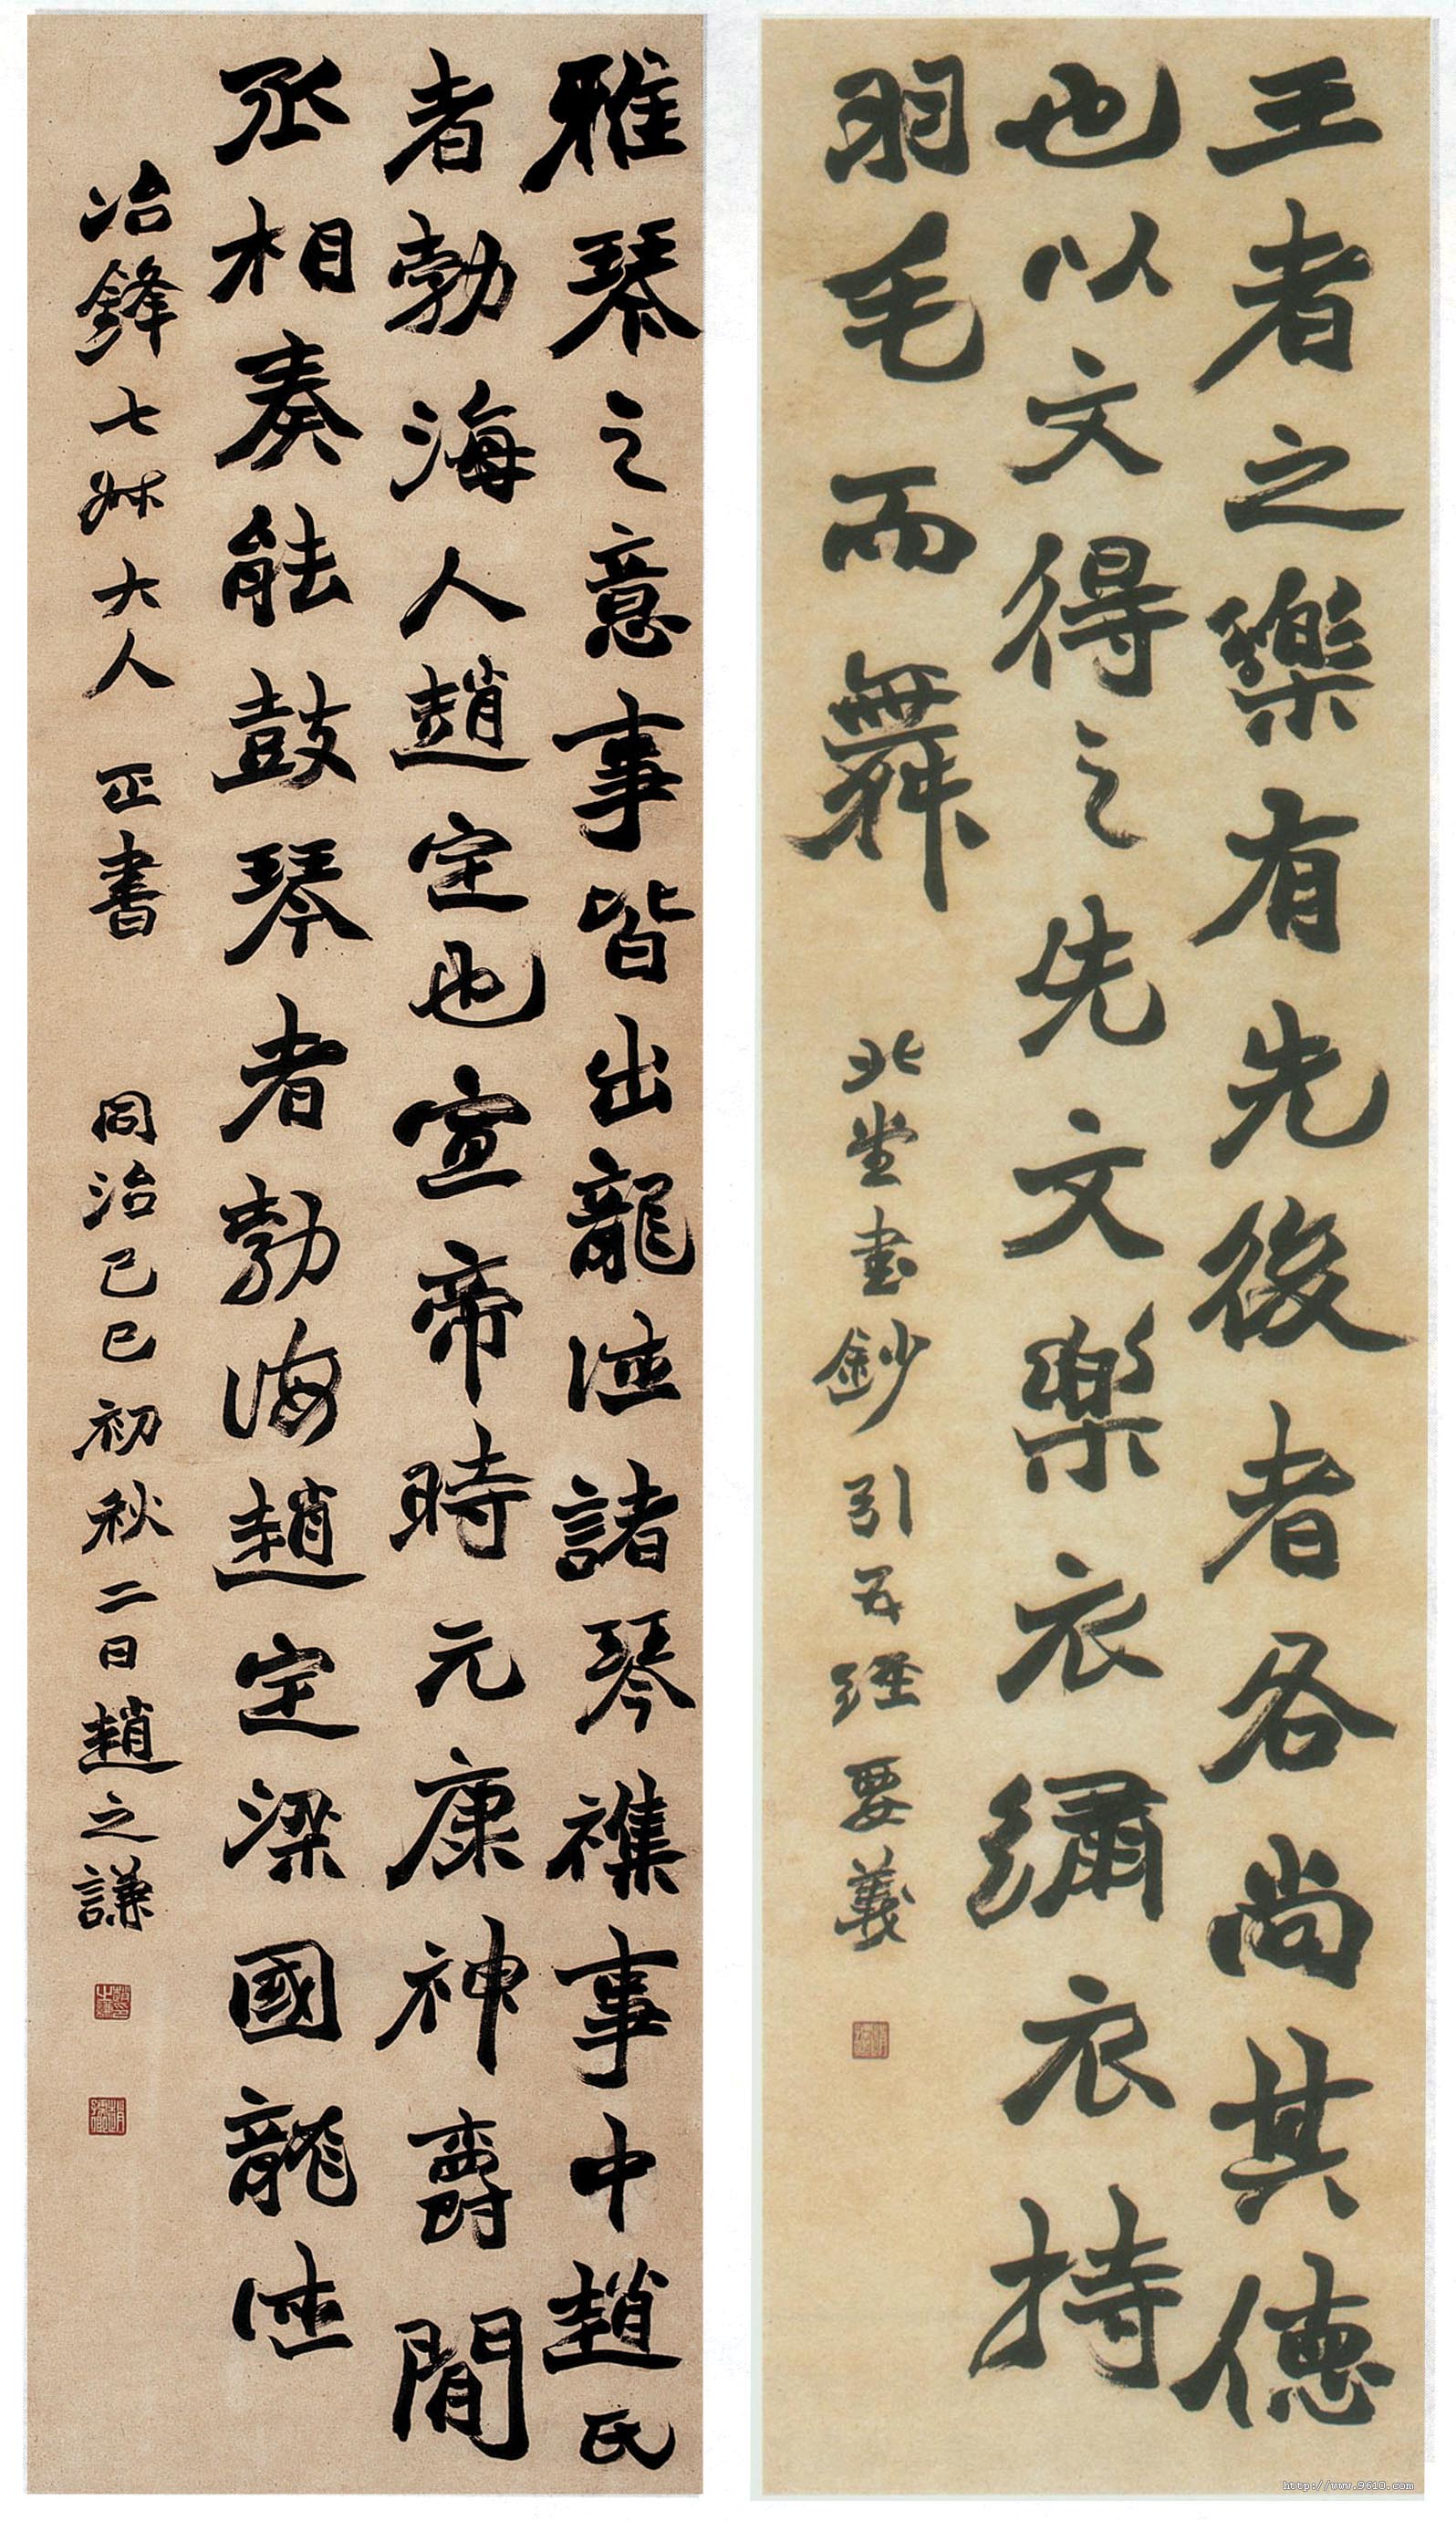 王者之樂有先後者各尚其德
也以文得之先文樂衣繡衣持
羽毛而舞
北堂書鈔引五經要義
雅琴之意事皆出龍德諸琴襍事中趙氏
者勃海人趙定也宣帝時元康神爵閒
丞相奏能鼓琴者勃海趙定梁國龍德
冶鋒七叔大人 正書 同治己巳初秋二日趙之謙
http://www.9610.com